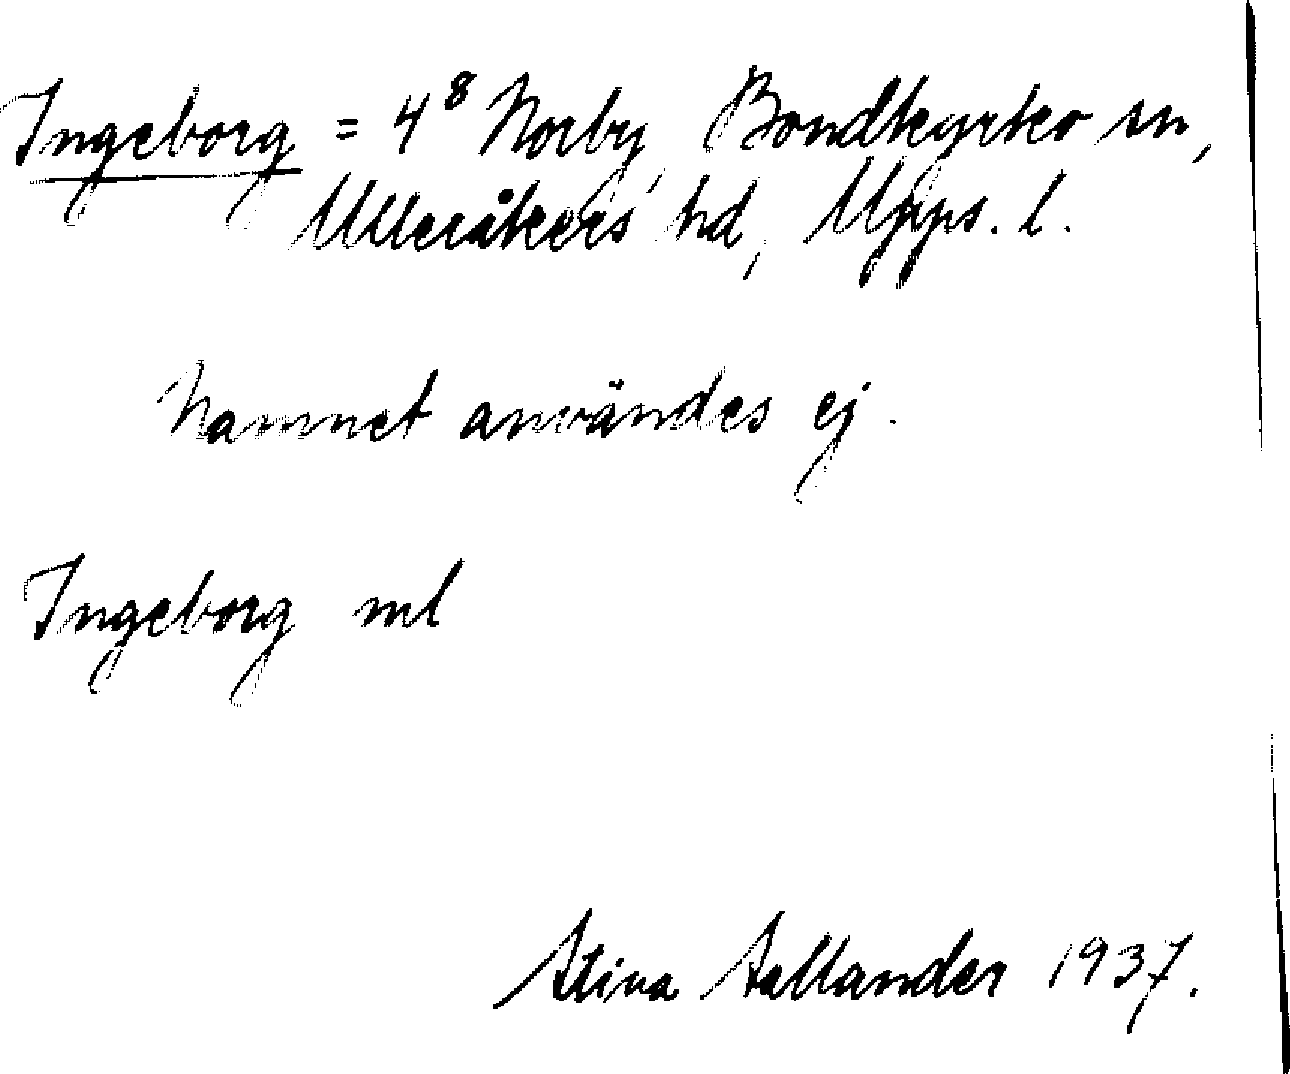 Ingeborg = 4⁸ Norby, Bondkyrko sn,
Ulleråkers hd, Upps. l.
Namnet användes ej.
Ingeborg ml
Stina Sellander 1937.